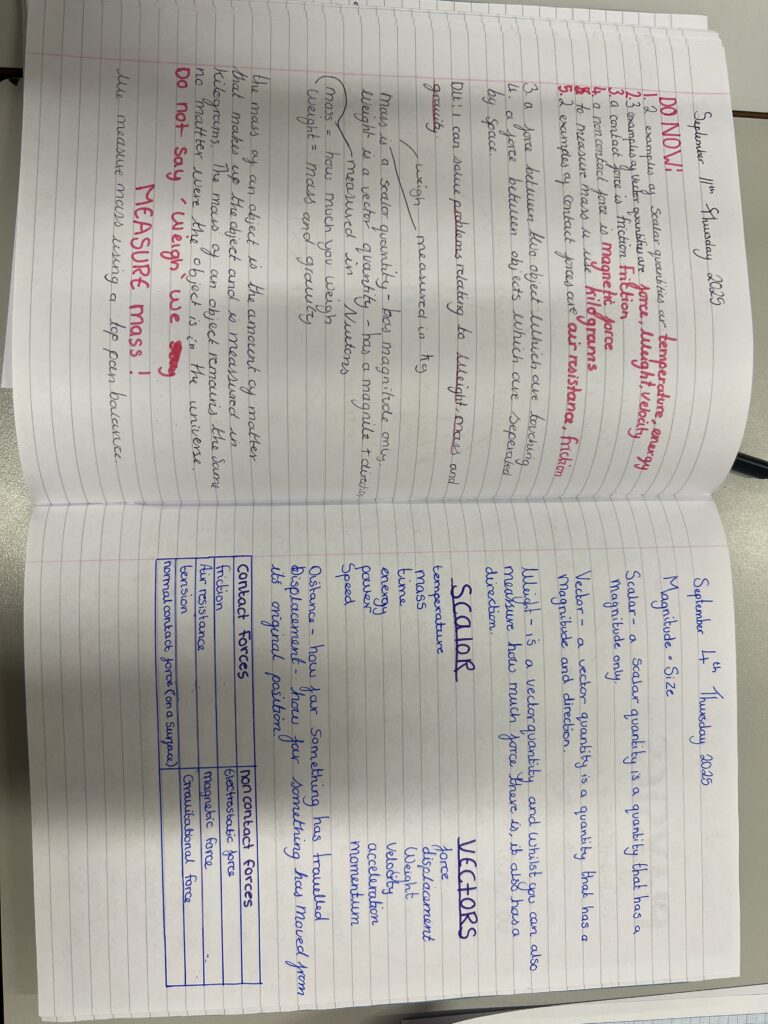 September 11th Thursday 2025
DO NOW:
1. 2 examples of scalar quantities ar temperature, energy
2. 3 examples of vector quantities are force, weight, velocity
3. a contact force is friction friction
4. a non contact force is magnetic force
5 to measure mass u use kildgrams
5. 2 examples of contact forces are air resistance, friction
3. a force between two object which are touching
4. a force between objects which are seperated
by space.
Dlit: I can solve problems relating to weight, mass and
gravity.
weigh measured in kg
mass is a scalor quantity - has magnitude only.
weight is a vector quantity - has a magnitle + directio
measured in Newtons
(mass = how much you weigh
weight = mass and gravity
the mass of an object is the amount of matter
that makes up the object and is meassured in
kilograms. The mass of an object remains the same
no matter were the object is in the universe.
Do not say 'weigh' we say
MEASURE mass!
We measure mass using a top pan balance.
September 4th Thursday 2025
Magnitude = Size
Scalar - a scalar quantity is a quantity that has a
magnitude only.
Vector - a vector quantity is a quantity that has a
magnitude and direction.
Weight - is a vector quantity and whilst you can also
measure how much force there is, it also has a
direction.
SCALOR VECTORS
temperature force
mass displacement
time Weight
energy velocity
power acceleration
Speed momentum
Distance - how far something has travelled
Displacement - how far something has moved from
its original position!
Contact forces non contact forces
friction Electrostatic force
Air resistance magnetic force
tension Gravitational force
normal contact force (on a surface)